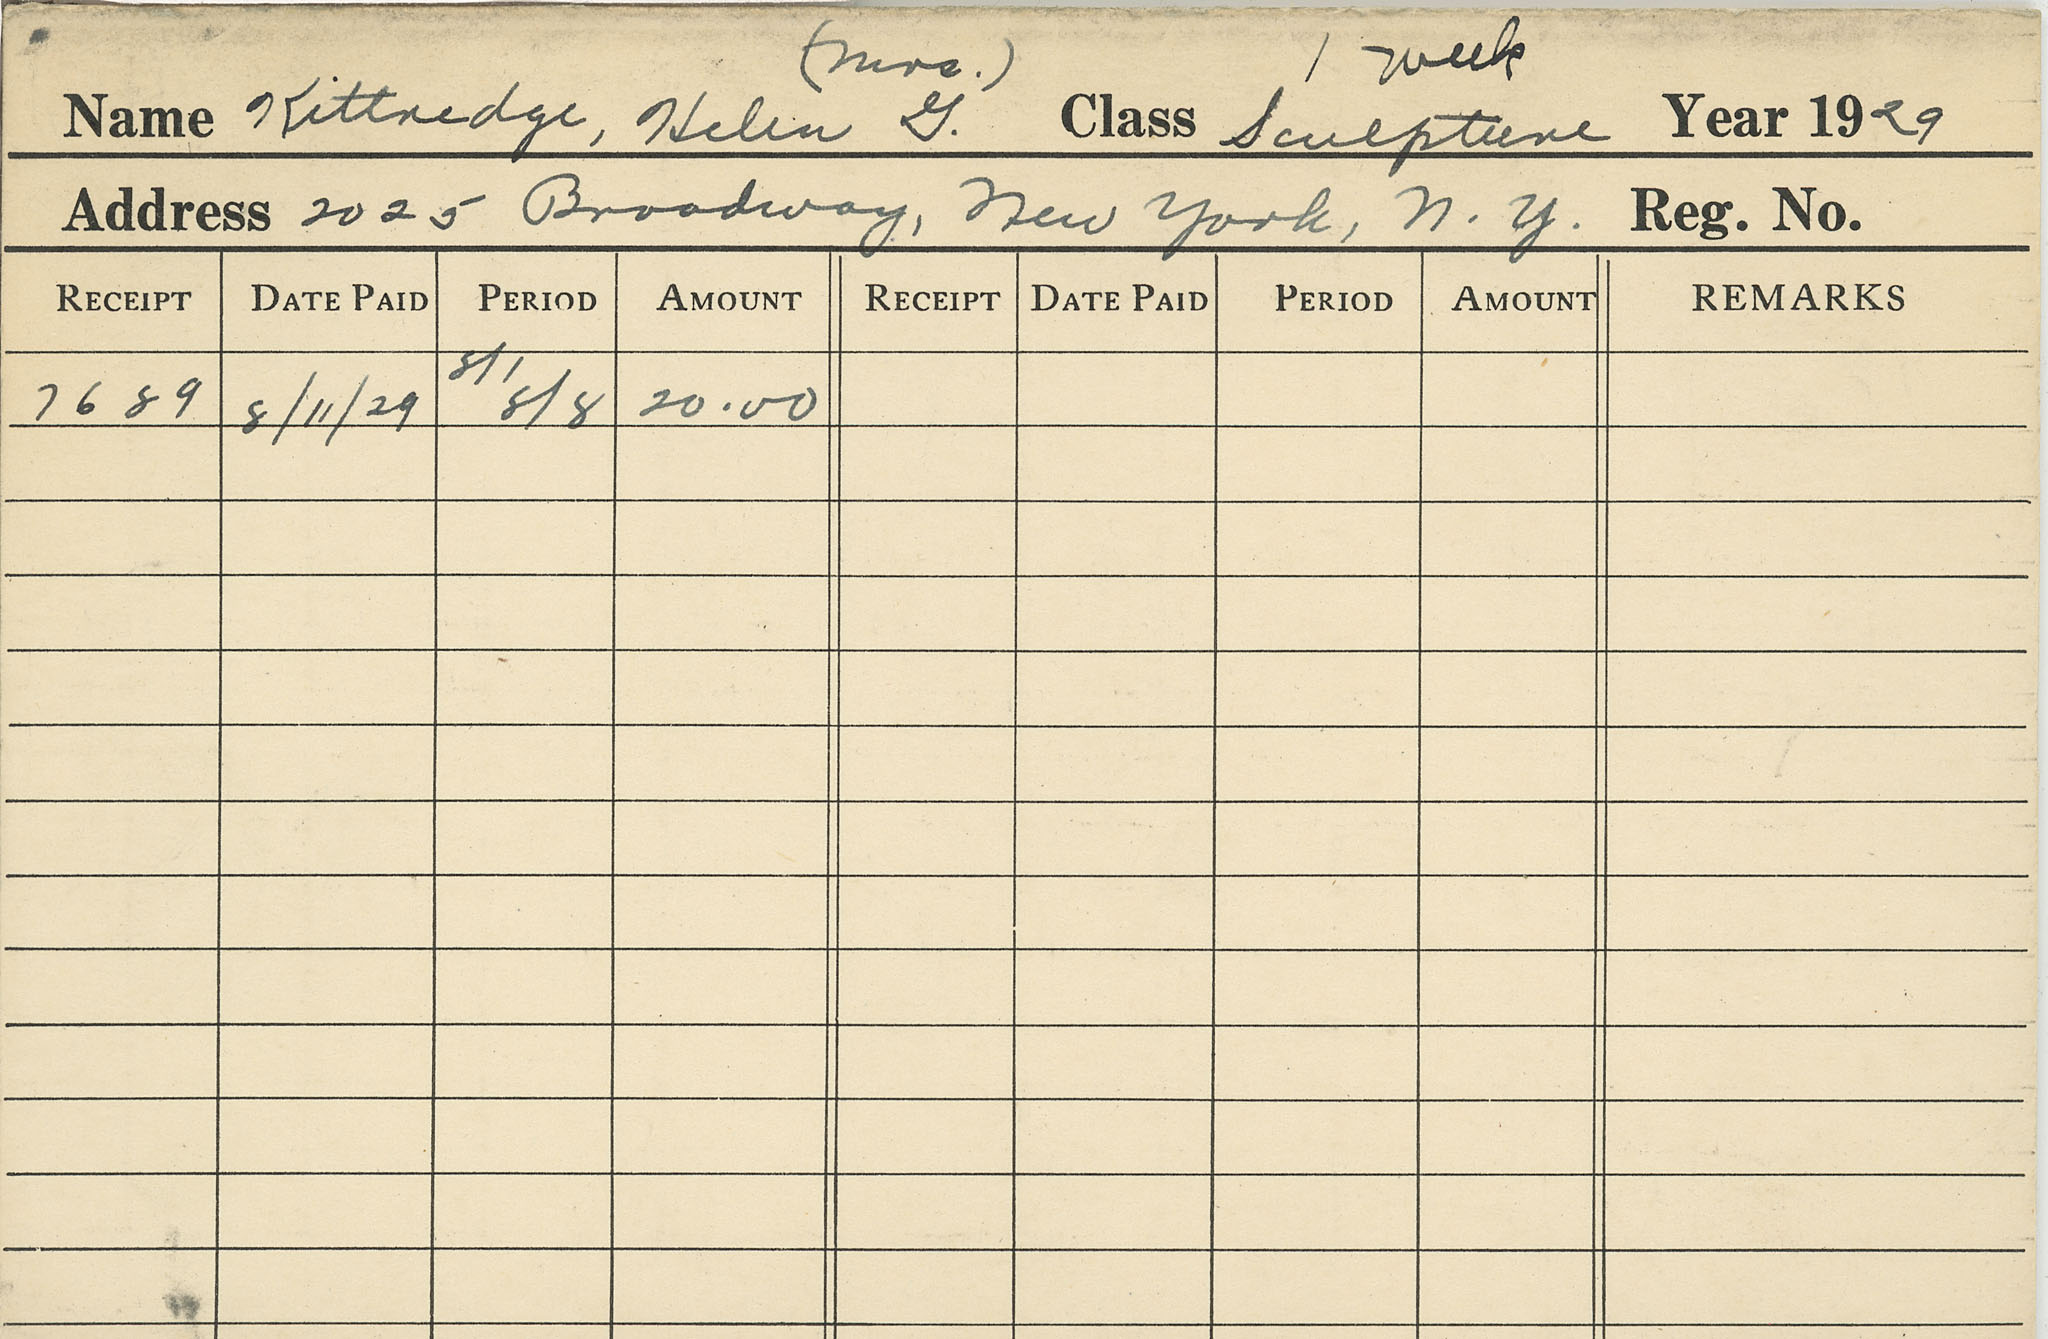 (Mrs.) 1 week
Name Kittredge, Helen G. Class Sculpture Year 1929
Address 2025 Broadway, New York, N.Y. Reg. No.
RECEIPT DATE PAID PERIOD AMOUNT RECEIPT DATE PAID PERIOD AMOUNT REMARKS
8/1
7689 8/11/29 8/8 20.00